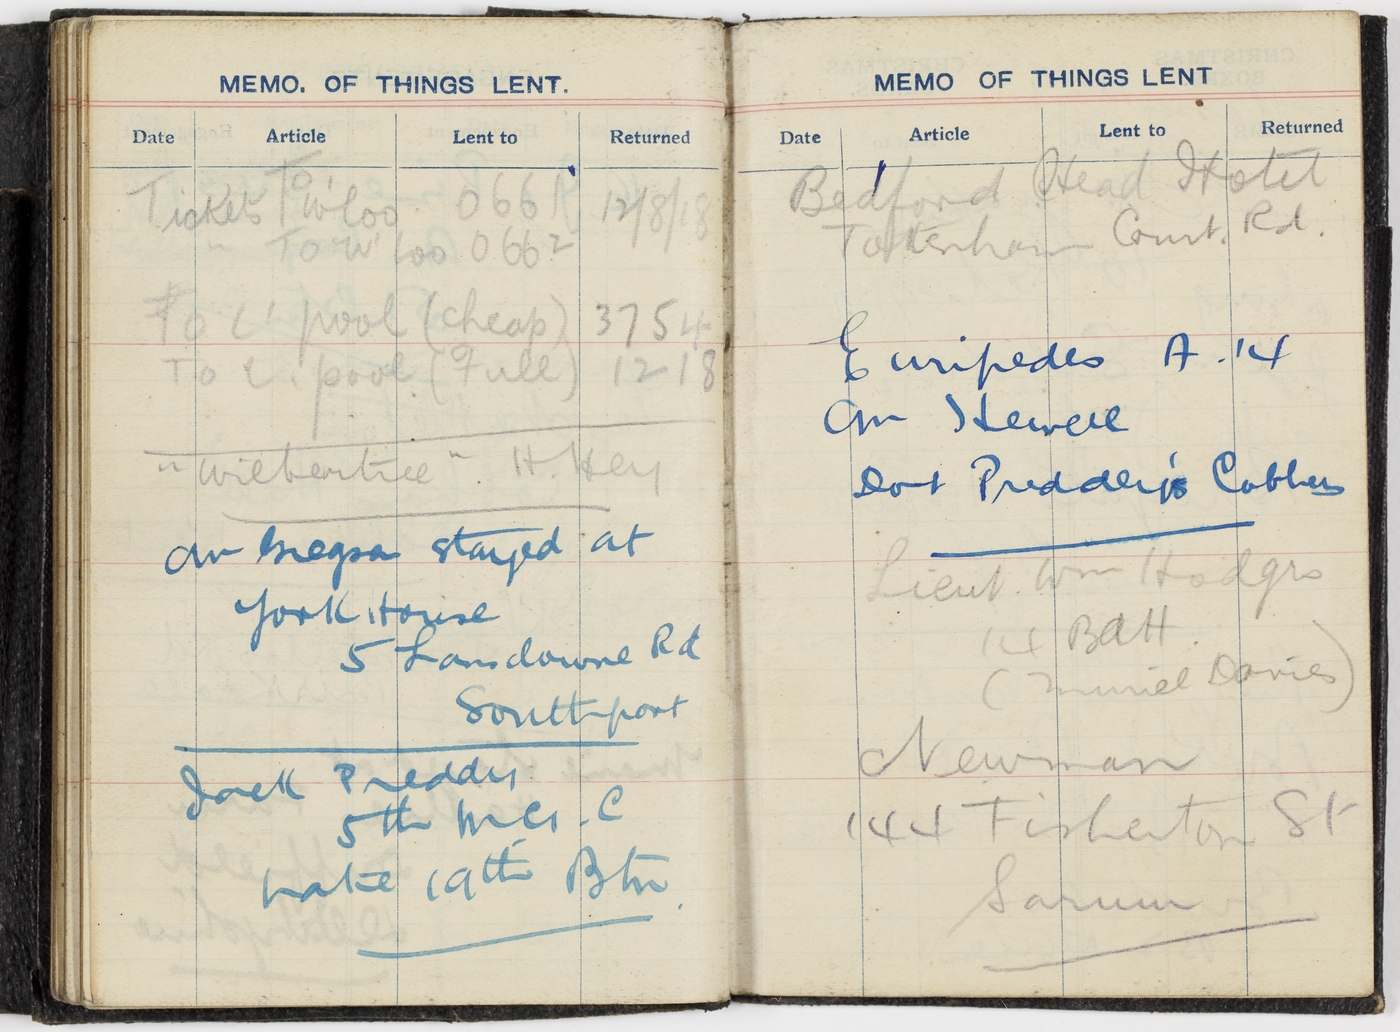 MEMO. OF THINGS LENT.
Date Article Lent to Returned
To
Tickets W'loo 0661 12/8/18
" To W'loo 0662
To L'pool (cheap) 3754
To L'pool (Full) 1218
" " H. Hey
stayed at
York House
5 Lansdowne Rd
Southport
Jack Preddy
5th M.G. C
late 19th Btn.
MEMO OF THINGS LENT
Date Article Lent to Returned
Bedford Head Hotel
Tottenham Court. Rd.
Euripedes A.14
Hewell
Dot Preddy's Cobbers
Lieut. Wm Hodgs
14 Batt.
(Muriel Davies)
Newman
144 Fisherton St
Sarum